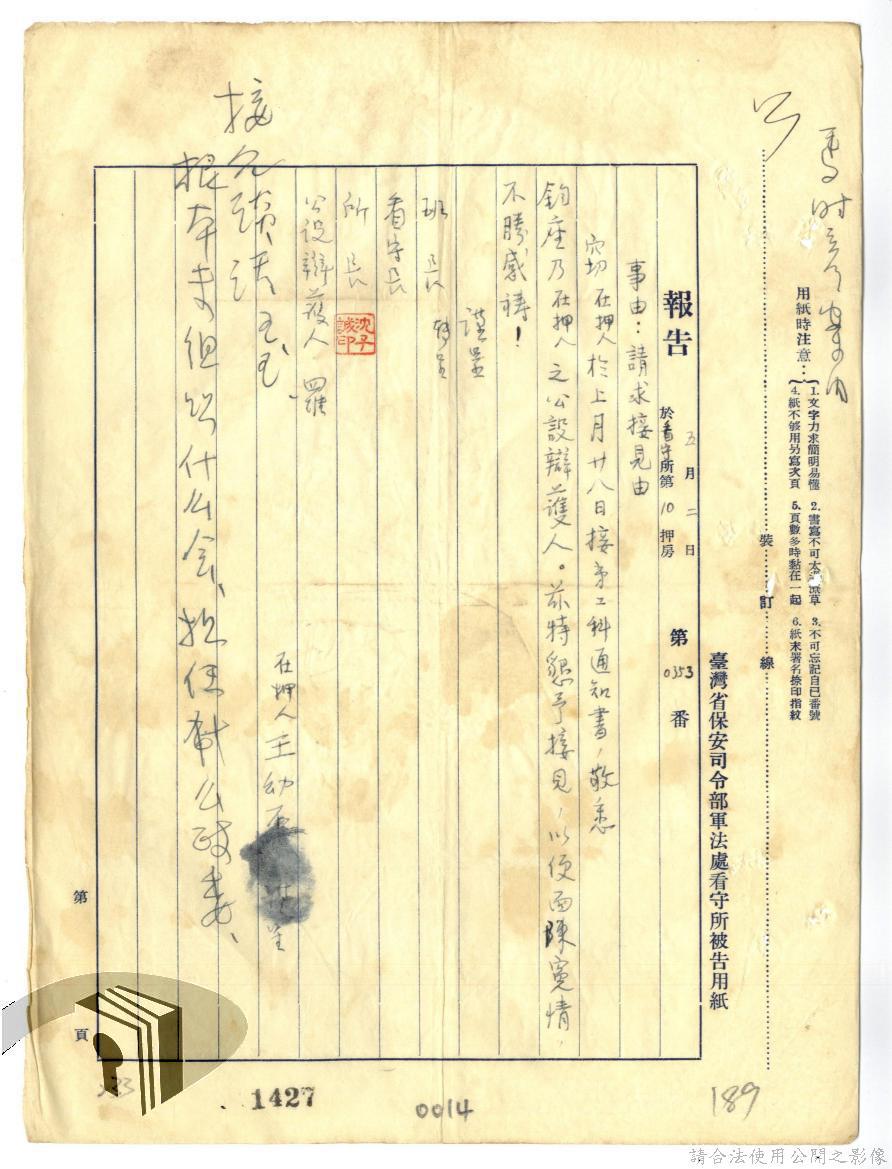 用紙時注意：
1. 文字力求簡明易懂 2. 書寫不可太潦草 3. 不可忘記自已番號
4. 紙不够用另寫次頁 5. 頁數多時黏在一起 6. 紙末署名捺印指紋
裝 訂 線
臺灣省保安司令部軍法處看守所被告用紙
報告
五月二日
於看守所第10押房
第0353番
事由：請求接見由
竊在押人於上月廿八日接第二科通知書，敬悉
鈞座乃在押人之公設辯護人。茲特懇予接見，以便面陳冤情，
不勝感禱！
謹呈
班長 轉呈
看守長
所長
沈子誠印
公設辯護人 羅
在押人王幼石 謹呈
根本未組織什么会、担任什么政委、
第 頁
1427
0014
189
請合法使用公開之影像